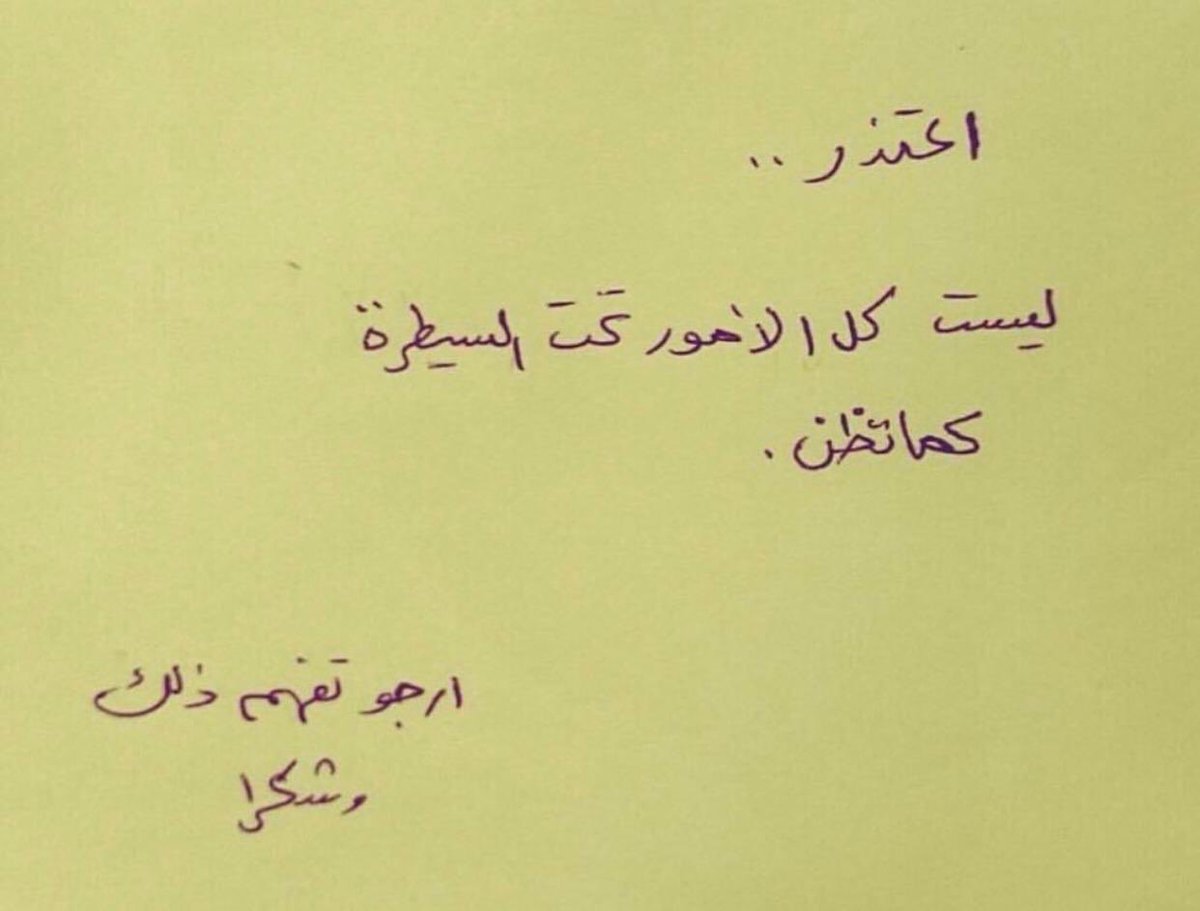 اعتذر ..
ليست كل الامور تحت السيطرة
كما تظن .
ارجو تفهم ذلك
وشكرا